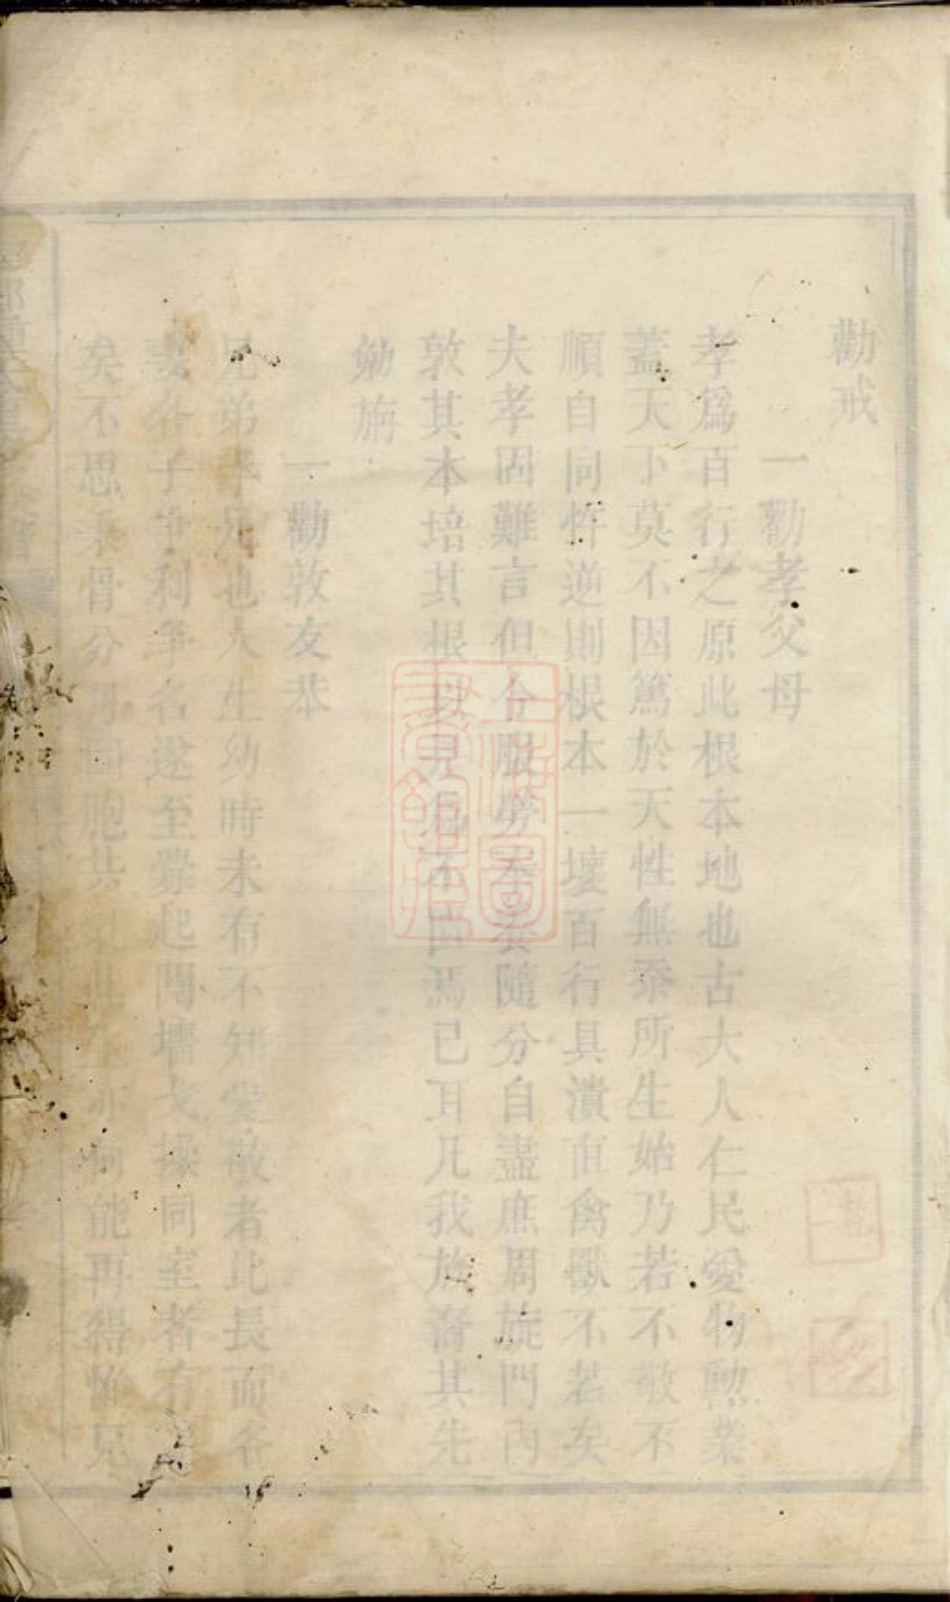 勸戒
一勸孝父母
孝爲百行之原此根本地也古大人仁民愛物勲業
蓋天下莫不因篤於天性無忝所生始乃若不敬不
順自同忤逆則根本一壞百行具潰直禽獸不若矣
夫孝固難言但令服勞奉養隨分自盡庶周旋門內
敦其本培其根以見爲不苟焉已耳凡我族裔其先
勉旃
一勸敦友恭
兄弟手足也人生幼時未有不知愛敬者比長而各
妻各子爭利爭名遂至釁起鬩墻戈操同室者有
矣不思骨分同胞共此生亦何能再得惟兄
上海圖書館藏